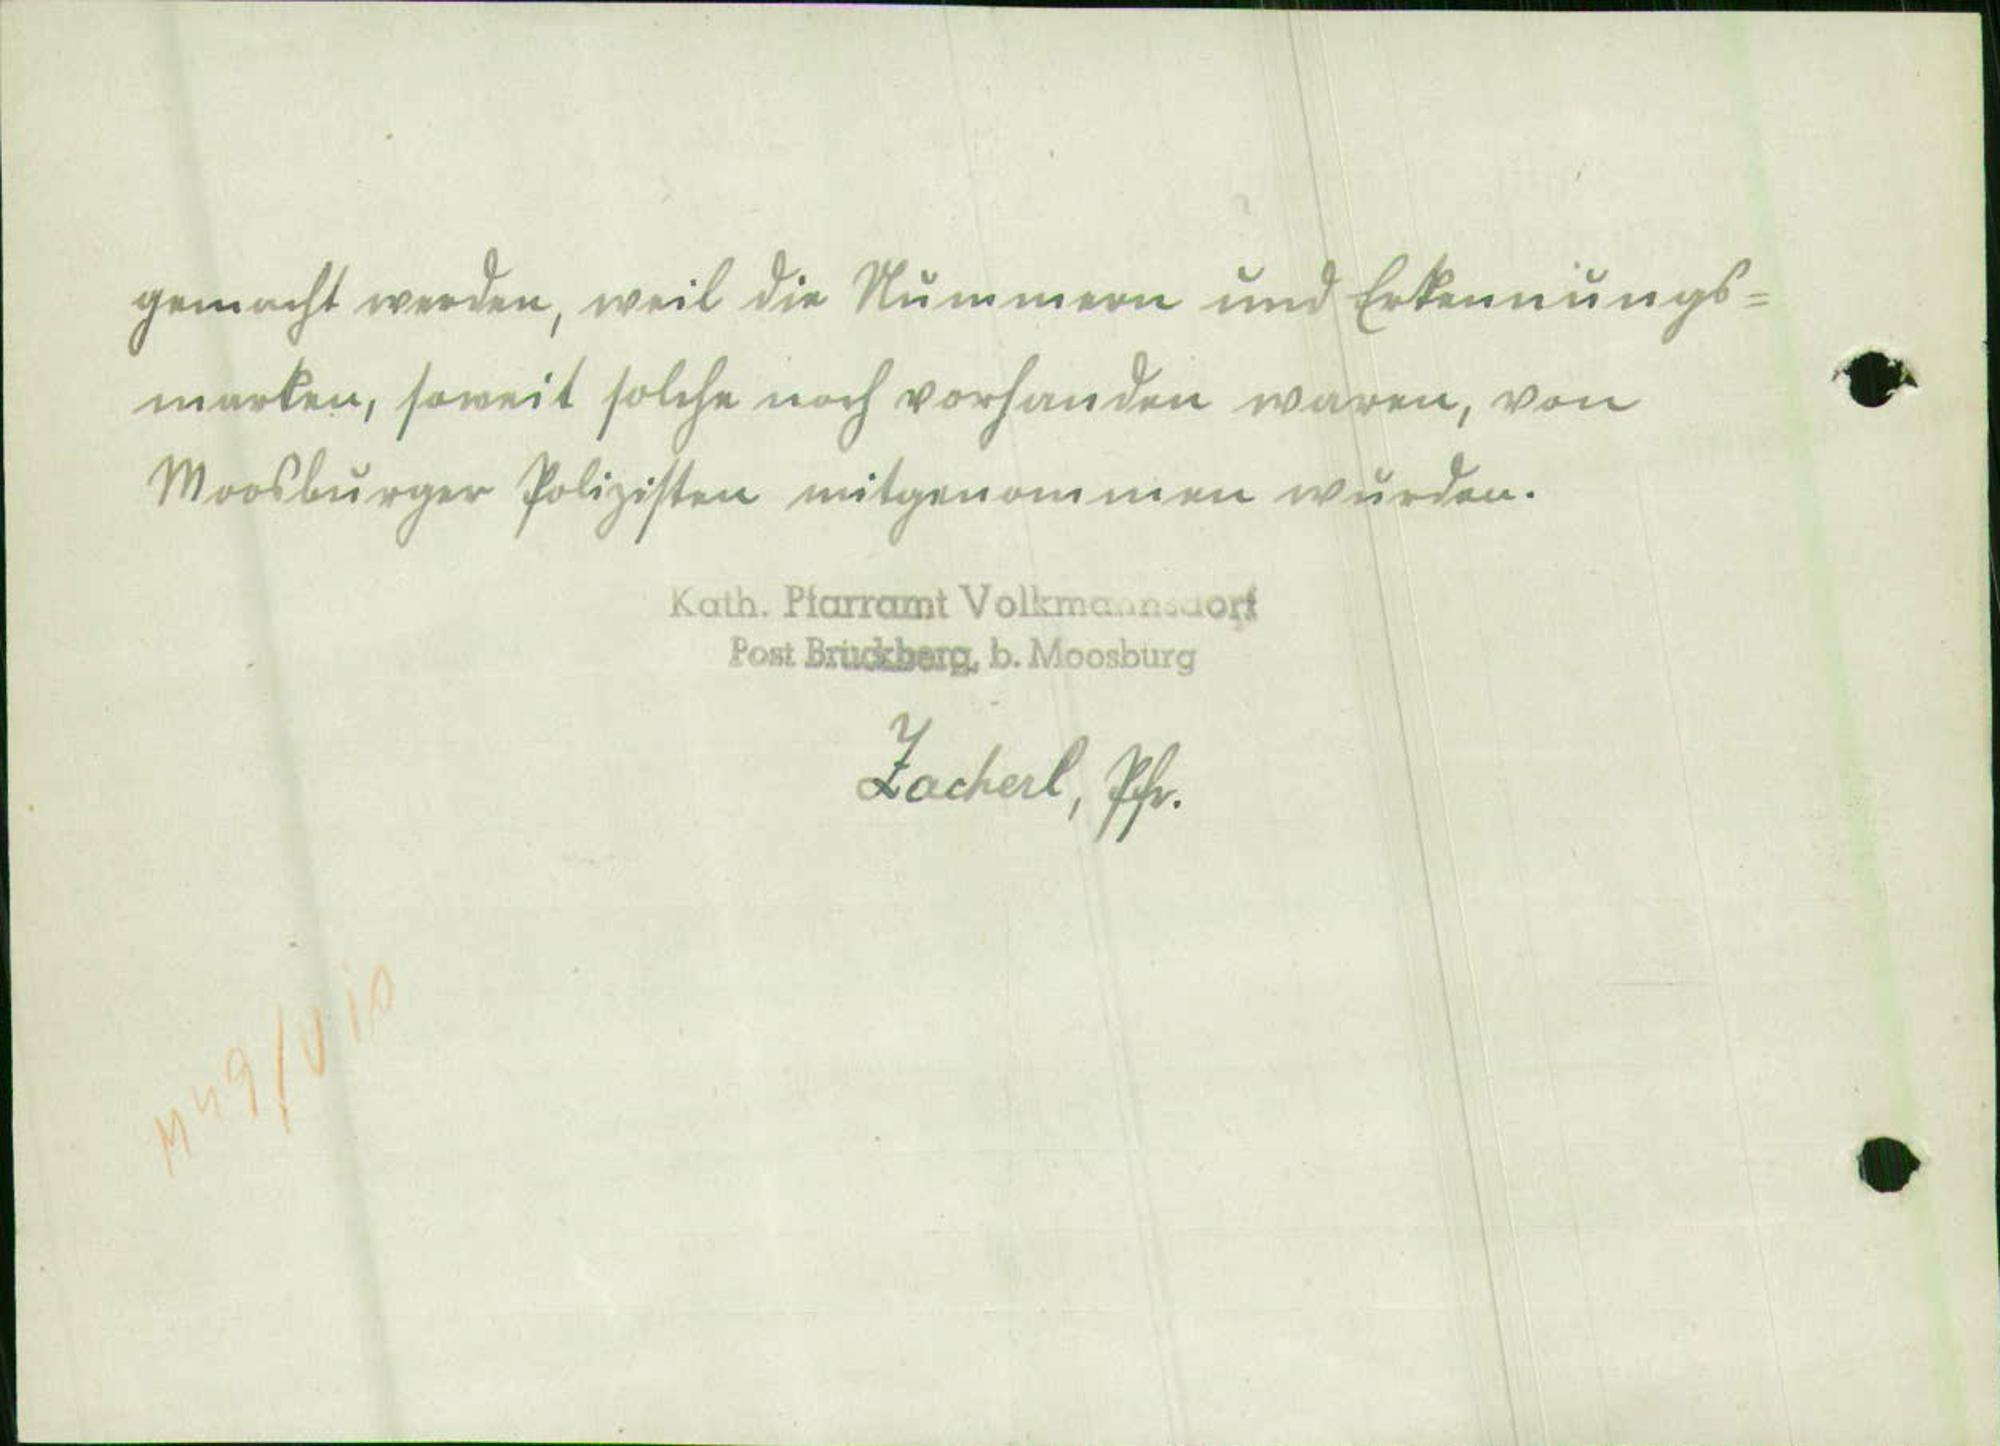 gemacht werden, weil die Nummern und Erkennungs=
marken, soweit solche noch vorhanden waren, von
Moosburger Polizisten mitgenommen wurden.
Kath. Pfarramt Volkmannsdorf
Post Bruckberg, b. Moosburg
Zacherl, Pfr.